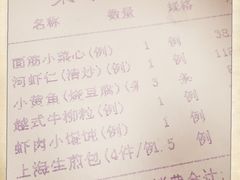 名称 数量 规格
面筋小菜心(例) 1 例 38
河虾仁(清炒)(例) 1 例 118
小黄鱼(烧豆腐)( 3 条
越式牛柳粒(例) 1 例
虾肉小馄饨(例) 1 例
上海生煎包(4件/例1.5 例